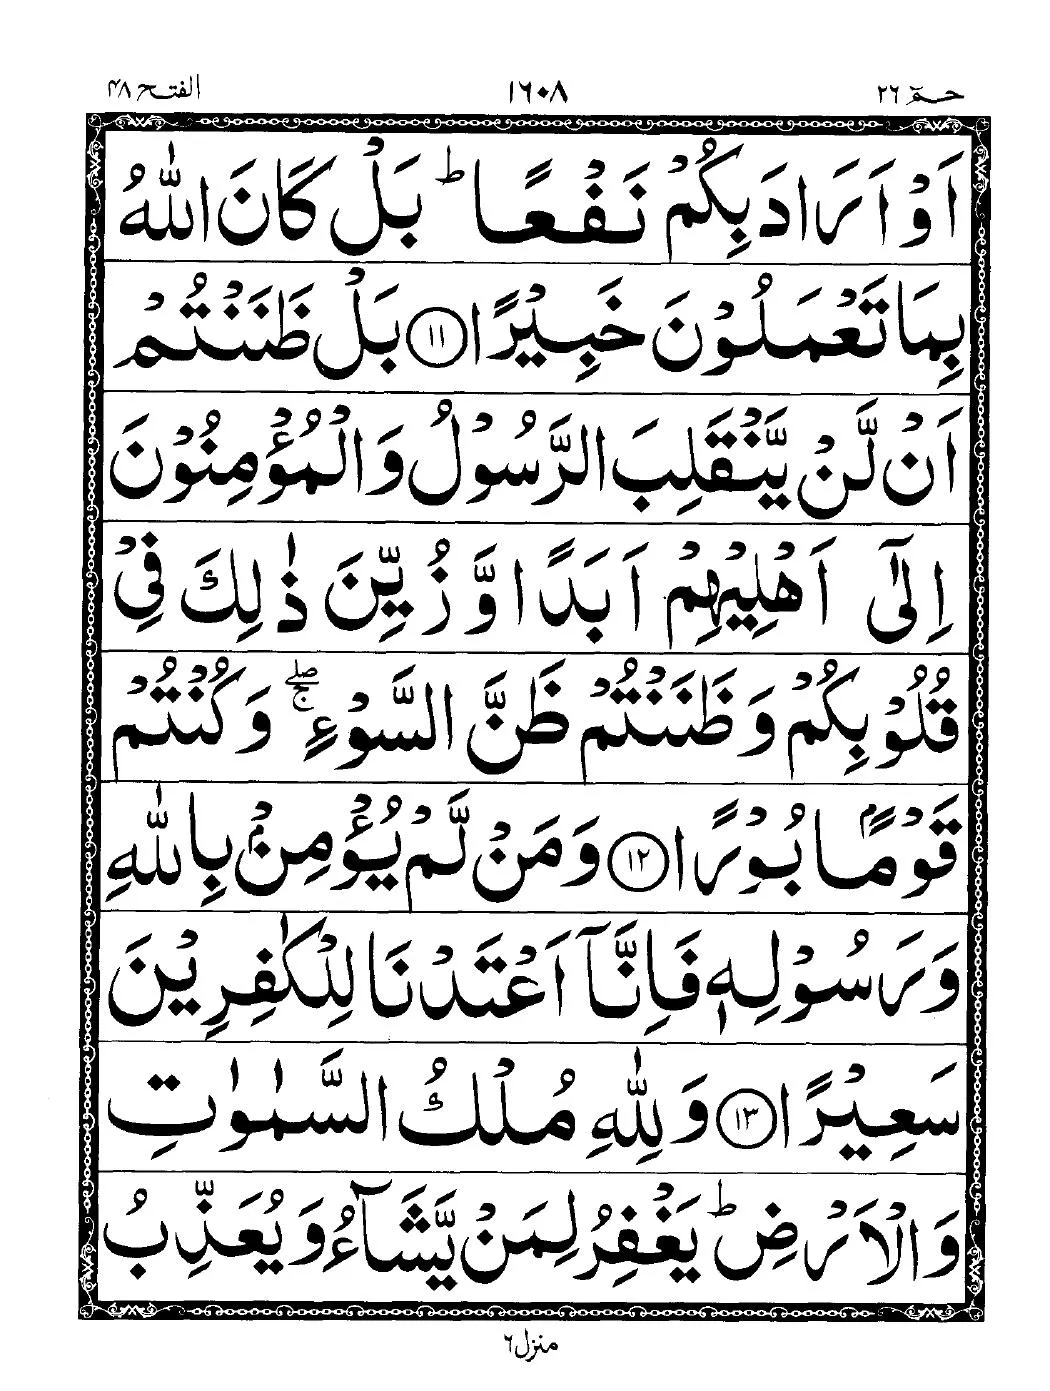 الفتح ٤٨ ١٦٠٨ حٰمٓ ٢٦
اَوْ اَرَادَ بِكُمْ نَفْعًا ؕ بَلْ كَانَ اللّٰهُ
بِمَا تَعْمَلُوْنَ خَبِيْرًا ١١ بَلْ ظَنَنْتُمْ
اَنْ لَّنْ يَّنْقَلِبَ الرَّسُوْلُ وَالْمُؤْمِنُوْنَ
اِلٰۤى اَهْلِيْهِمْ اَبَدًا وَّ زُيِّنَ ذٰلِكَ فِيْ
قُلُوْبِكُمْ وَظَنَنْتُمْ ظَنَّ السَّوْءِ ۖۚ وَكُنْتُمْ
قَوْمًۢا بُوْرًا ١٢ وَمَنْ لَّمْ يُؤْمِنْۢ بِاللّٰهِ
وَرَسُوْلِهٖ فَاِنَّاۤ اَعْتَدْنَا لِلْكٰفِرِيْنَ
سَعِيْرًا ١٣ وَلِلّٰهِ مُلْكُ السَّمٰوٰتِ
وَالْاَرْضِ ؕ يَغْفِرُ لِمَنْ يَّشَآءُ وَيُعَذِّبُ
منزل ٦